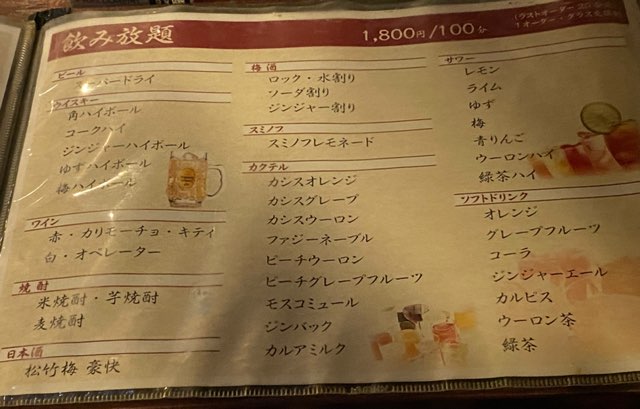 飲み放題
1,800円/100分
(ラストオーダー 20分前
1オーダー・グラス交換制
ビール
スーパードライ
ウイスキー
角ハイボール
コークハイ
ジンジャーハイボール
ゆずハイボール
梅ハイボール
ワイン
赤・カリモーチョ・キティ
白・オペレーター
焼酎
米焼酎・芋焼酎
麦焼酎
日本酒
松竹梅 豪快
梅酒
ロック・水割り
ソーダ割り
ジンジャー割り
スミノフ
スミノフレモネード
カクテル
カシスオレンジ
カシスグレープ
カシスウーロン
ファジーネーブル
ピーチウーロン
ピーチグレープフルーツ
モスコミュール
ジンバック
カルアミルク
サワー
レモン
ライム
ゆず
梅
青りんご
ウーロンハイ
緑茶ハイ
ソフトドリンク
オレンジ
グレープフルーツ
コーラ
ジンジャーエール
カルピス
ウーロン茶
緑茶